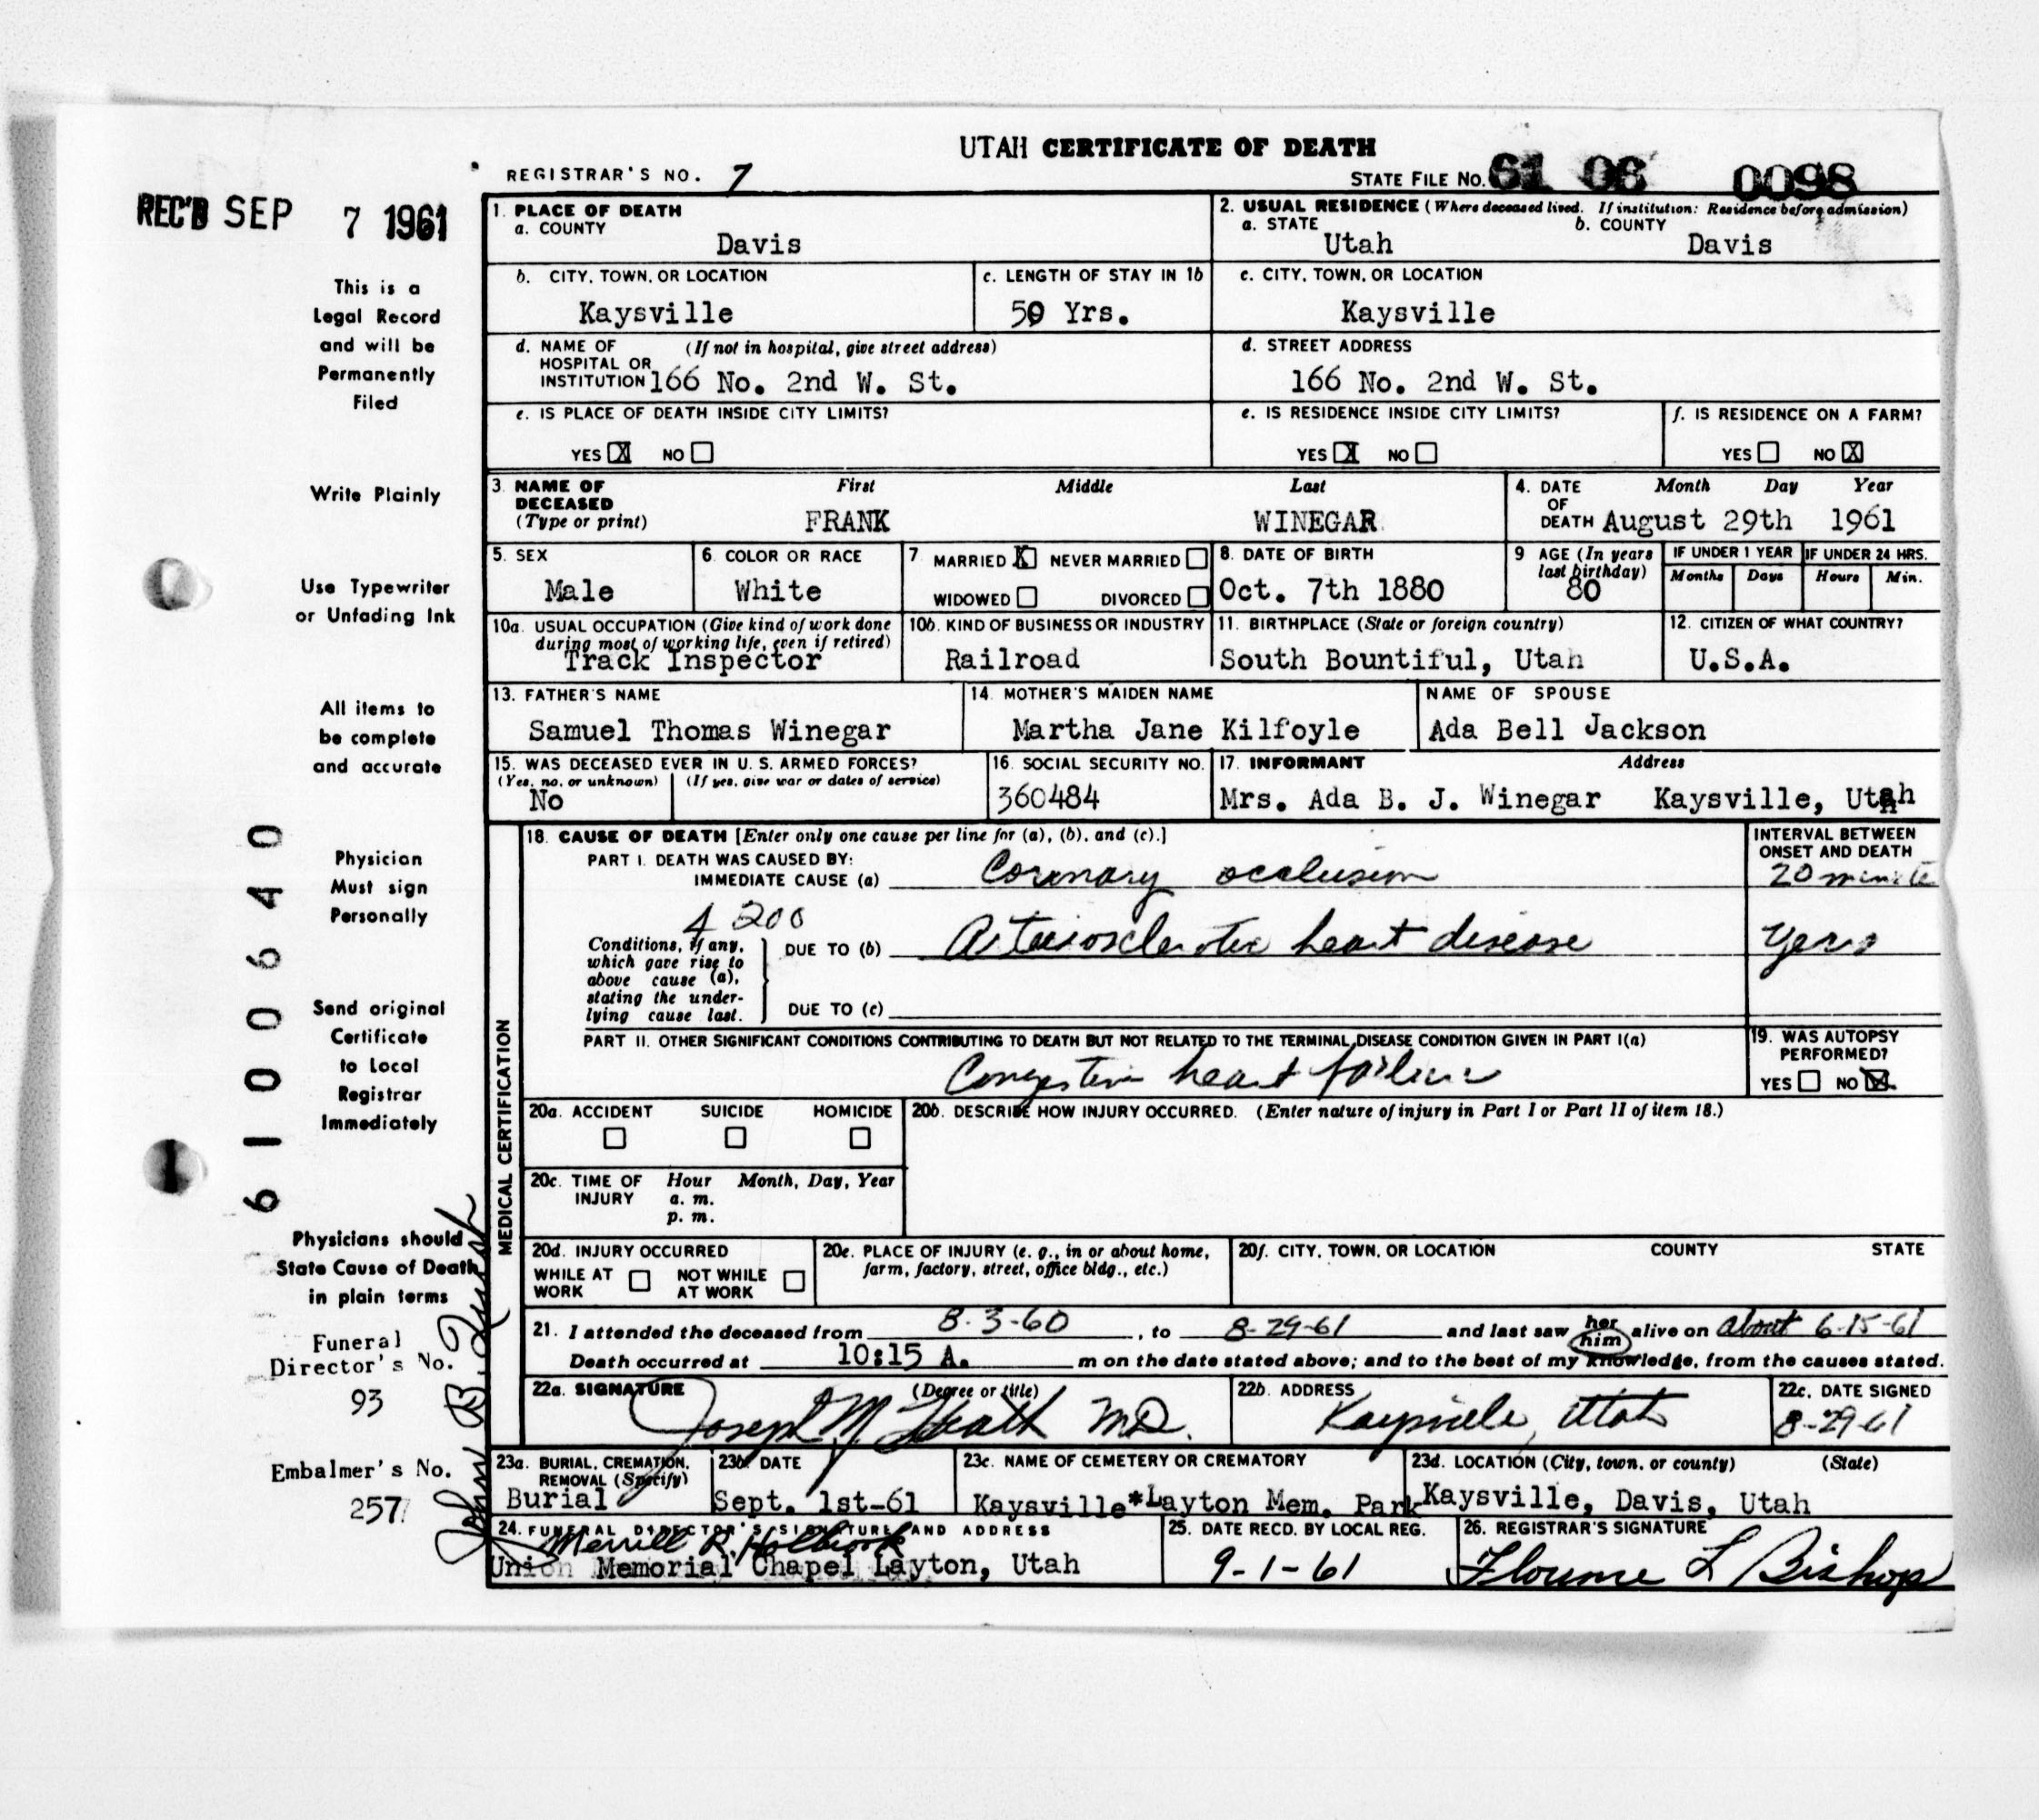 UTAH CERTIFICATE OF DEATH
REGISTRAR'S NO. 7
STATE FILE NO. 61 06 0098
REC'D SEP 7 1961
This is a
Legal Record
and will be
Permanently
Filed
Write Plainly
Use Typewriter
or Unfading Ink
All items to
be complete
and accurate
Physician
Must sign
Personally
Send original
Certificate
to Local
Registrar
Immediately
Physicians should
State Cause of Death
in plain terms
Funeral
Director's No.
93
Embalmer's No.
257
6100640
John B.
1. PLACE OF DEATH
a. COUNTY
Davis
2. USUAL RESIDENCE (Where deceased lived. If institution: Residence before admission)
a. STATE b. COUNTY
Utah Davis
b. CITY, TOWN, OR LOCATION
Kaysville
c. LENGTH OF STAY IN 1b
50 Yrs.
c. CITY, TOWN, OR LOCATION
Kaysville
d. NAME OF (If not in hospital, give street address)
HOSPITAL OR
INSTITUTION 166 No. 2nd W. St.
d. STREET ADDRESS
166 No. 2nd W. St.
e. IS PLACE OF DEATH INSIDE CITY LIMITS?
YES X NO
e. IS RESIDENCE INSIDE CITY LIMITS?
YES X NO
f. IS RESIDENCE ON A FARM?
YES NO X
3. NAME OF DECEASED (Type or print)
First Middle Last
FRANK WINEGAR
4. DATE OF DEATH
Month Day Year
August 29th 1961
5. SEX
Male
6. COLOR OR RACE
White
7. MARRIED X NEVER MARRIED
WIDOWED DIVORCED
8. DATE OF BIRTH
Oct. 7th 1880
9 AGE (In years last birthday)
80
IF UNDER 1 YEAR
Months Days
IF UNDER 24 HRS.
Hours Min.
10a. USUAL OCCUPATION (Give kind of work done
during most of working life, even if retired)
Track Inspector
10b. KIND OF BUSINESS OR INDUSTRY
Railroad
11. BIRTHPLACE (State or foreign country)
South Bountiful, Utah
12. CITIZEN OF WHAT COUNTRY?
U.S.A.
13. FATHER'S NAME
Samuel Thomas Winegar
14. MOTHER'S MAIDEN NAME
Martha Jane Kilfoyle
NAME OF SPOUSE
Ada Bell Jackson
15. WAS DECEASED EVER IN U. S. ARMED FORCES?
(Yes, no, or unknown) (If yes, give war or dates of service)
No
16. SOCIAL SECURITY NO.
360484
17. INFORMANT Address
Mrs. Ada B. J. Winegar Kaysville, Utah
MEDICAL CERTIFICATION
18. CAUSE OF DEATH [Enter only one cause per line for (a), (b), and (c).]
INTERVAL BETWEEN
ONSET AND DEATH
PART I. DEATH WAS CAUSED BY:
IMMEDIATE CAUSE (a) Coronary occlusion 20 minute
4200
Conditions, if any,
which gave rise to
above cause (a),
stating the under-
lying cause last.
DUE TO (b) Arteriosclerotic heart disease years
DUE TO (c)
PART II. OTHER SIGNIFICANT CONDITIONS CONTRIBUTING TO DEATH BUT NOT RELATED TO THE TERMINAL DISEASE CONDITION GIVEN IN PART I(a)
Congestive heart failure
19. WAS AUTOPSY
PERFORMED?
YES NO X
20a. ACCIDENT SUICIDE HOMICIDE
20b. DESCRIBE HOW INJURY OCCURRED. (Enter nature of injury in Part I or Part II of item 18.)
20c. TIME OF INJURY
Hour Month, Day, Year
a. m.
p. m.
20d. INJURY OCCURRED
WHILE AT WORK NOT WHILE AT WORK
20e. PLACE OF INJURY (e. g., in or about home,
farm, factory, street, office bldg., etc.)
20f. CITY, TOWN, OR LOCATION COUNTY STATE
21. I attended the deceased from 8-3-60, to 8-29-61 and last saw her him alive on about 6-15-61
Death occurred at 10:15 A. m on the date stated above; and to the best of my knowledge, from the causes stated.
22a. SIGNATURE (Degree or title)
Joseph M. Heath MD.
22b. ADDRESS
Kaysville, Utah
22c. DATE SIGNED
8-29-61
23a. BURIAL, CREMATION,
REMOVAL (Specify)
Burial
23b. DATE
Sept. 1st-61
23c. NAME OF CEMETERY OR CREMATORY
Kaysville*Layton Mem. Park
23d. LOCATION (City, town, or county) (State)
Kaysville, Davis, Utah
24. FUNERAL DIRECTOR'S SIGNATURE AND ADDRESS
Merrill R. Holbrook
Union Memorial Chapel Layton, Utah
25. DATE RECD. BY LOCAL REG.
9-1-61
26. REGISTRAR'S SIGNATURE
Florence L Bishop